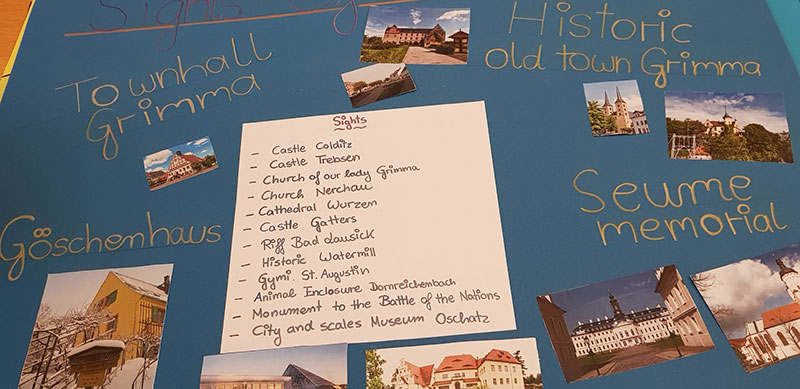 Sights
Townhall
Grimma
Historic
old town Grimma
Göschenhaus
Seume
memorial
Sights
- Castle Colditz
- Castle Trebsen
- Church of our lady Grimma
- Church Nerchau
- Cathedral Wurzen
- Castle Gatters
- Riff Bad Lausick
- Historic Watermill
- Gymi St. Augustin
- Animal Enclosure Dornreichenbach
- Monument to the Battle of the Nations
- City and scales Museum Oschatz